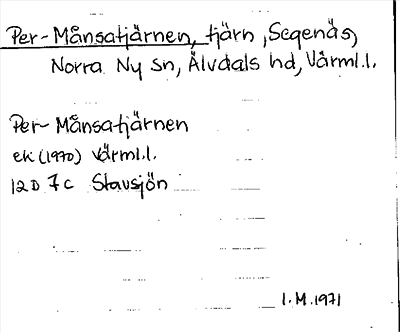 Per-Månsatjärnen, tjärn, Segenäs,
Norra Ny sn, Älvdals hd, Värml.l.
Per-Månsatjärnen
ek (1970) Värml.l.
12D 7c Stavsjön
I.M.1971